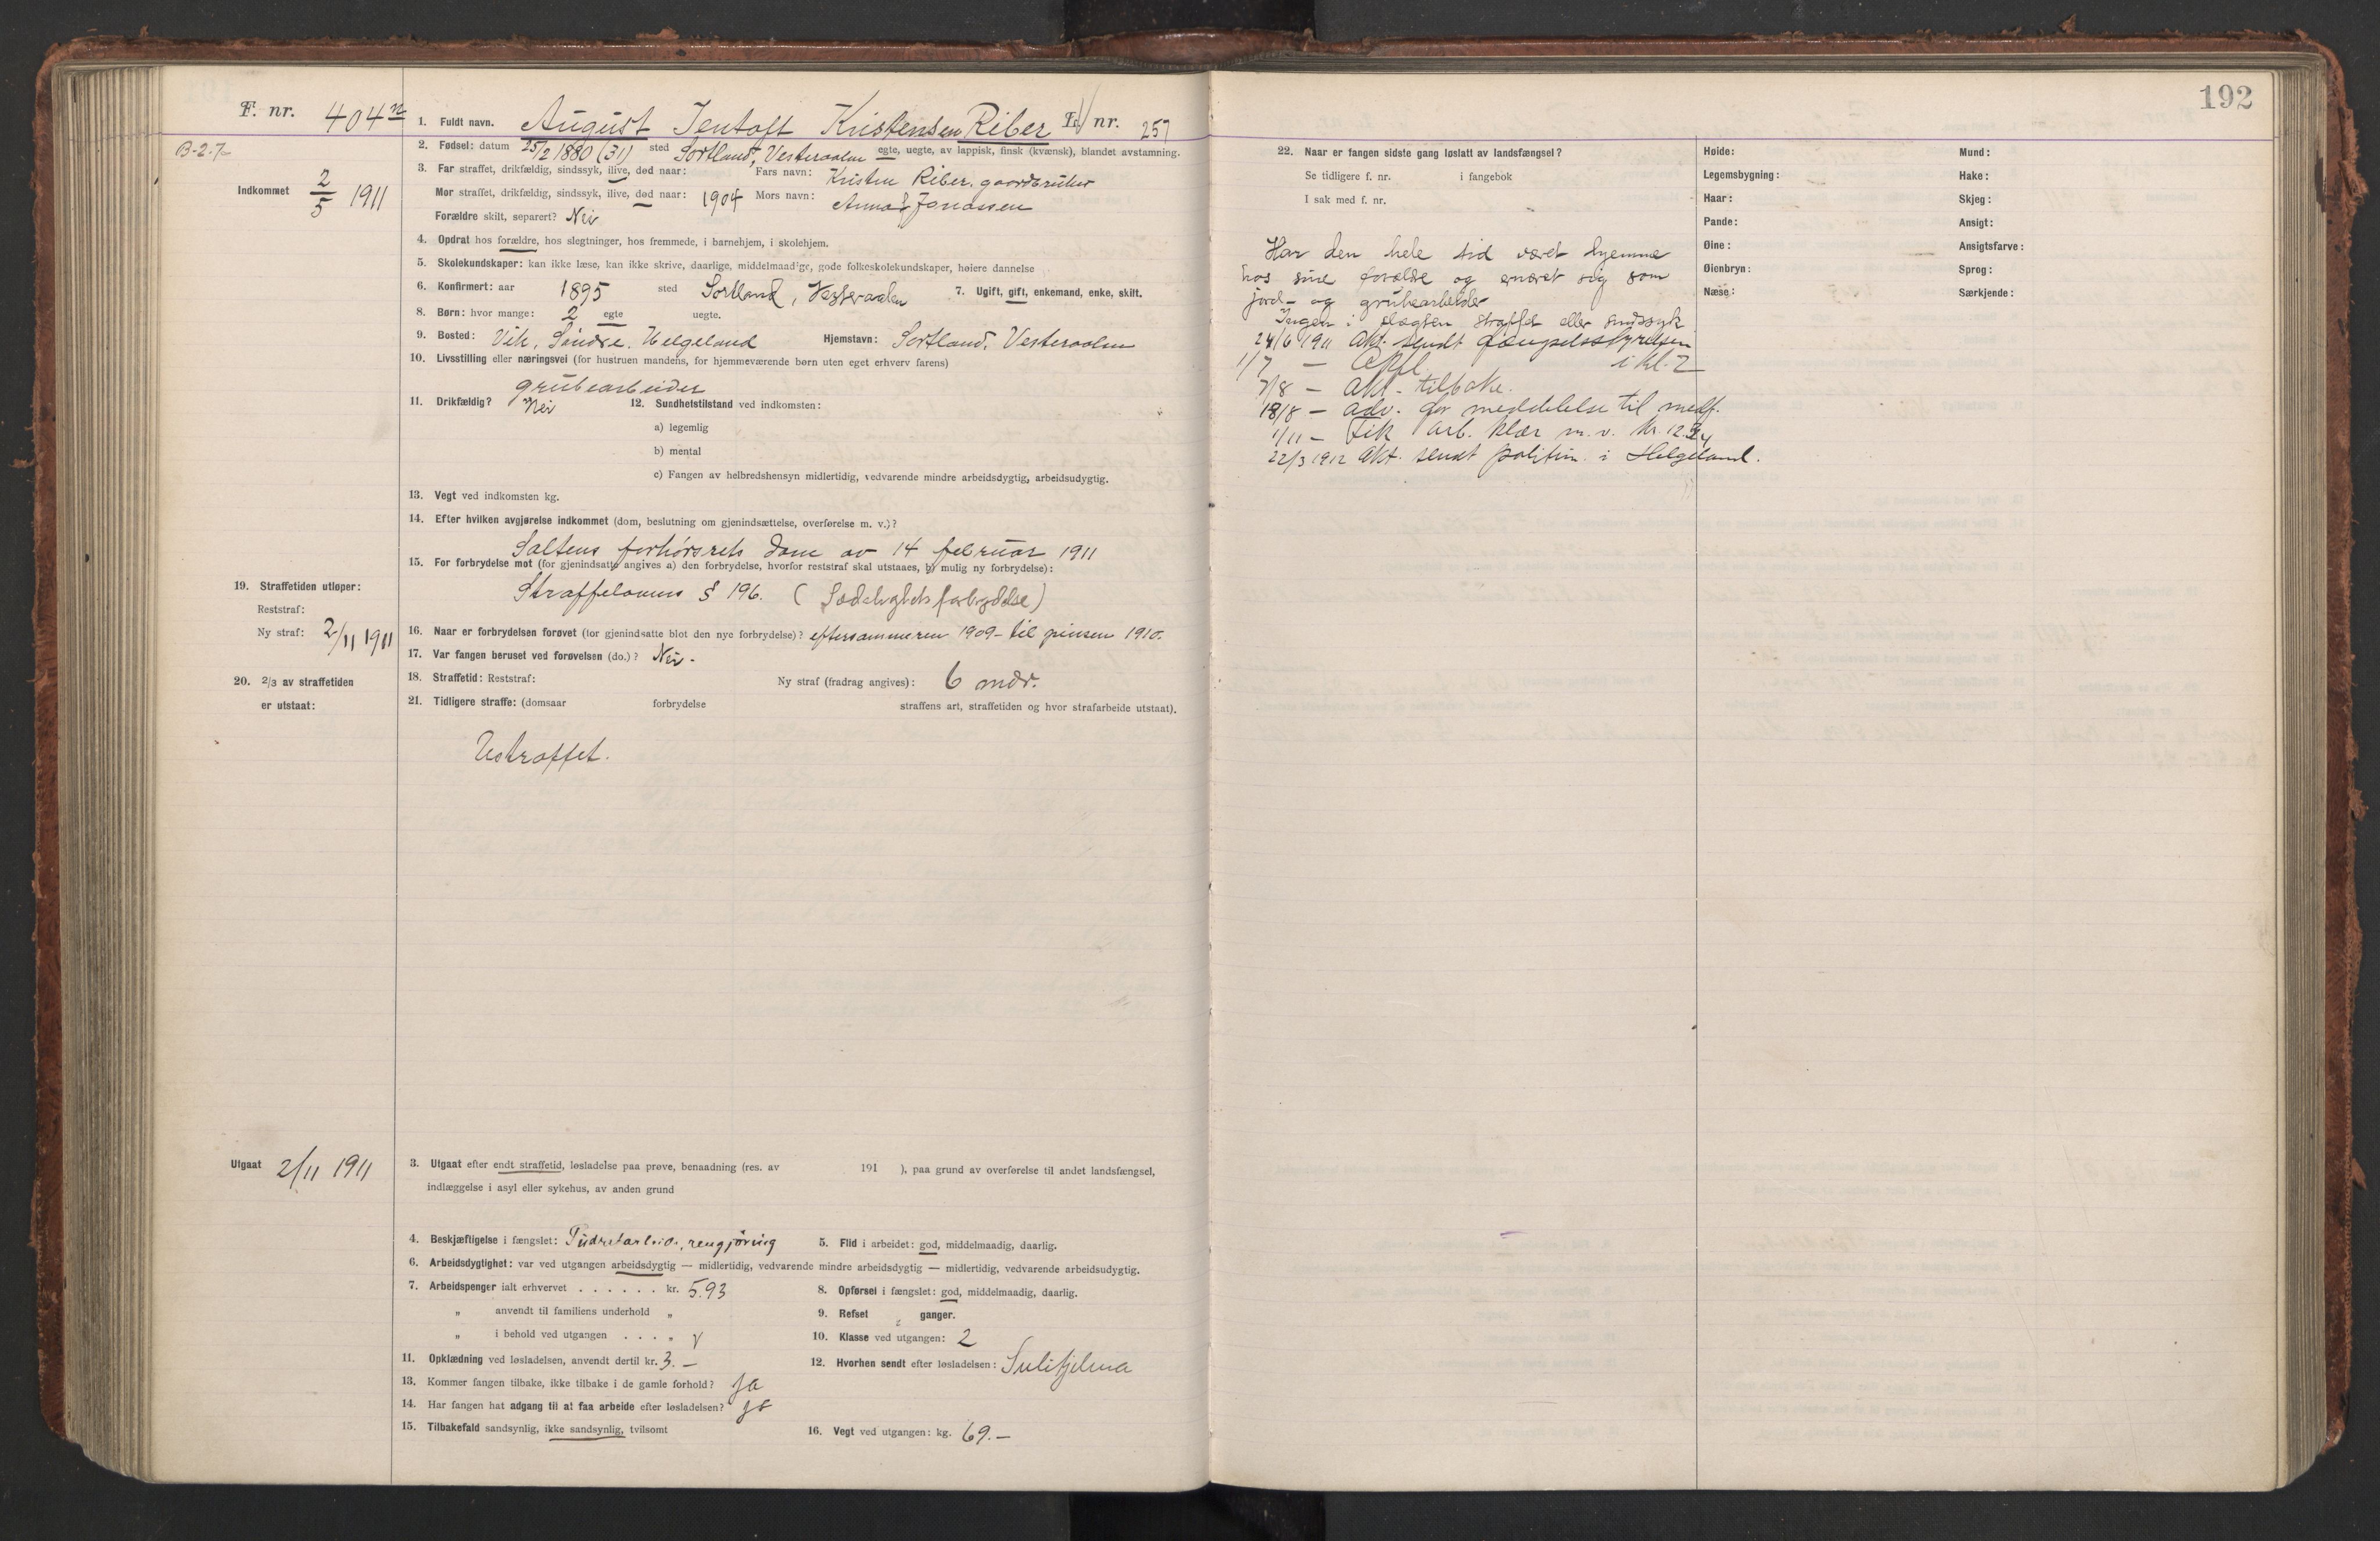 192
F. nr. 404
1. Fuldt navn. August Jentoft Kristensen Riber L. nr. 257
B-2-7a
Indkommet 2/5 1911
2. Fødsel: datum 25/2 1880 (31) sted Sortland, Vesteraalen egte, uegte, av lappisk, finsk (kvænsk), blandet avstamning.
3. Far straffet, drikfældig, sindssyk, ilive, død naar: Fars navn: Kristen Riber, gaardbruker
Mor straffet, drikfældig, sindssyk, ilive, død naar: 1904 Mors navn: Anna Jonassen
Forældre skilt, separert? Nei
4. Opdrat hos forældre, hos slegtninger, hos fremmede, i barnehjem, i skolehjem.
5. Skolekundskaper: kan ikke læse, kan ikke skrive, daarlige, middelmaadige, gode folkeskolekundskaper, høiere dannelse
6. Konfirmert: aar 1895 sted Sortland, Vesteraalen 7. Ugift, gift, enkemand, enke, skilt.
8. Børn: hvor mange: 2 egte uegte.
9. Bosted: Vik, Søndre Helgeland Hjemstavn: Sortland, Vesteraalen
10. Livsstilling eller næringsvei (for hustruen mandens, for hjemmeværende børn uten eget erhverv farens)
grubearbeider
11. Drikfældig? Nei 12. Sundhetstilstand ved indkomsten:
a) legemlig
b) mental
c) Fangen av helbredshensyn midlertidig, vedvarende mindre arbeidsdygtig, arbeidsudygtig.
13. Vegt ved indkomsten kg.
14. Efter hvilken avgjørelse indkommet (dom, beslutning om gjenindsættelse, overførelse m. v.)?
Saltens forhørsrets dom av 14 februar 1911
15. For forbrydelse mot (for gjenindsatte angives a) den forbrydelse, hvorfor reststraf skal utstaaes, b) mulig ny forbrydelse):
Straffelovens § 196. (Sædelighetsforbrydelse)
19. Straffetiden utløper:
Reststraf:
Ny straf: 2/11 1911
16. Naar er forbrydelsen forøvet (for gjenindsatte blot den nye forbrydelse)? eftersommeren 1909 - til pinsen 1910.
17. Var fangen beruset ved forøvelsen (do.)? Nei.
18. Straffetid: Reststraf: Ny straf (fradrag angives): 6 mdr.
20. 2/3 av straffetiden
er utstaat:
21. Tidligere straffe: (domsaar forbrydelse straffens art, straffetiden og hvor strafarbeide utstaat).
Ustraffet.
Utgaat 2/11 1911
3. Utgaat efter endt straffetid, løsladelse paa prøve, benaadning (res. av 191 ), paa grund av overførelse til andet landsfængsel,
indlæggelse i asyl eller sykehus, av anden grund
4. Beskjæftigelse i fængslet: Pudretarbeid., rengjøring 5. Flid i arbeidet: god, middelmaadig, daarlig.
6. Arbeidsdygtighet: var ved utgangen arbeidsdygtig — midlertidig, vedvarende mindre arbeidsdygtig — midlertidig, vedvarende arbeidsudygtig.
7. Arbeidspenger ialt erhvervet . . . . . . kr. 5.93 8. Opførsel i fængslet: god, middelmaadig, daarlig.
„ anvendt til familiens underhold „ 9. Refset „ ganger.
„ i behold ved utgangen . . . „ 10. Klasse ved utgangen: 2
11. Opklædning ved løsladelsen, anvendt dertil kr. 3.— 12. Hvorhen sendt efter løsladelsen: Sulitjelma
13. Kommer fangen tilbake, ikke tilbake i de gamle forhold? ja
14. Har fangen hat adgang til at faa arbeide efter løsladelsen? ja
15. Tilbakefald sandsynlig, ikke sandsynlig, tvilsomt 16. Vegt ved utgangen: kg. 69.—
22. Naar er fangen sidste gang løslatt av landsfængsel?
Se tidligere f. nr. i fangebok
I sak med f. nr.
Har den hele tid været hjemme
hos sine forældre og ernæret sig som
jord- og grubearbeider
Ingen i slægten straffet eller sindssyk
24/6 1911 Akt. sendt fængselsstyrelsen
1/7 — Opfl. i kl. 2
7/8 — Akt. tilbake.
18/8 — adv. for meddelelse til medf.
1/11 — Fik arb. klær m. v. kr. 12.24
22/3 1912 Akt. sendt politim. i Helgeland.
Høide: Mund:
Legemsbygning: Hake:
Haar: Skjeg:
Pande: Ansigt:
Øine: Ansigtsfarve:
Øienbryn: Sprog:
Næse: Særkjende: